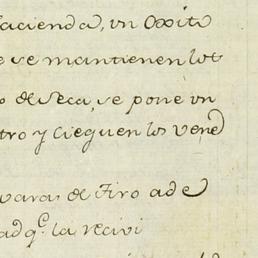 acienda, un Oxito
e se mantienen los
o de Seca, se pone un
tro y cieguen los vene
varas de Tiro a de
adq.ᵉ la recivi